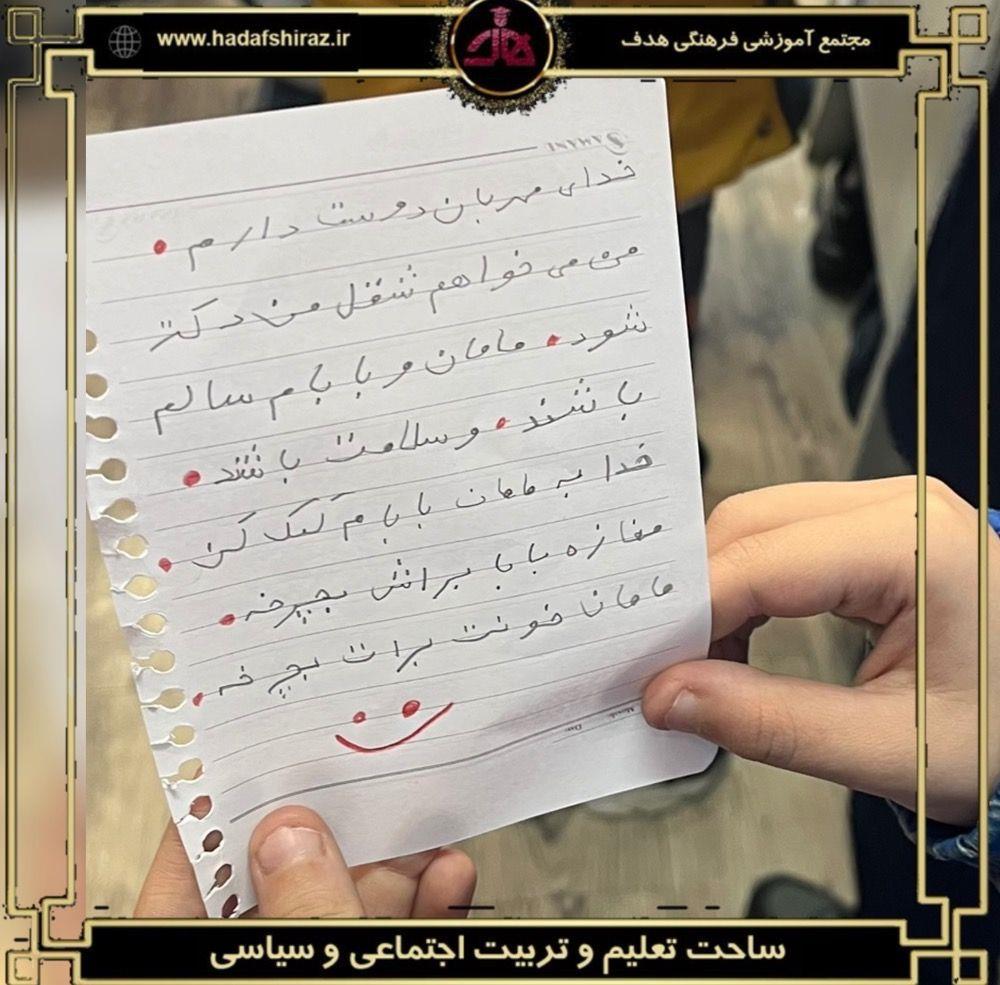 www.hadafshiraz.ir
هدف
مجتمع آموزشی فرهنگی هدف
خدای مهربان دوست دارم.
من می خواهم شغل من دکتر
شود. مامان و بابام سالم
باشند. و سلامت باشند.
خدا به مامان بابام کمک کن.
مغازه بابا براش بچرخه.
مامانا خونت برات بچرخه.
ساحت تعلیم و تربیت اجتماعی و سیاسی